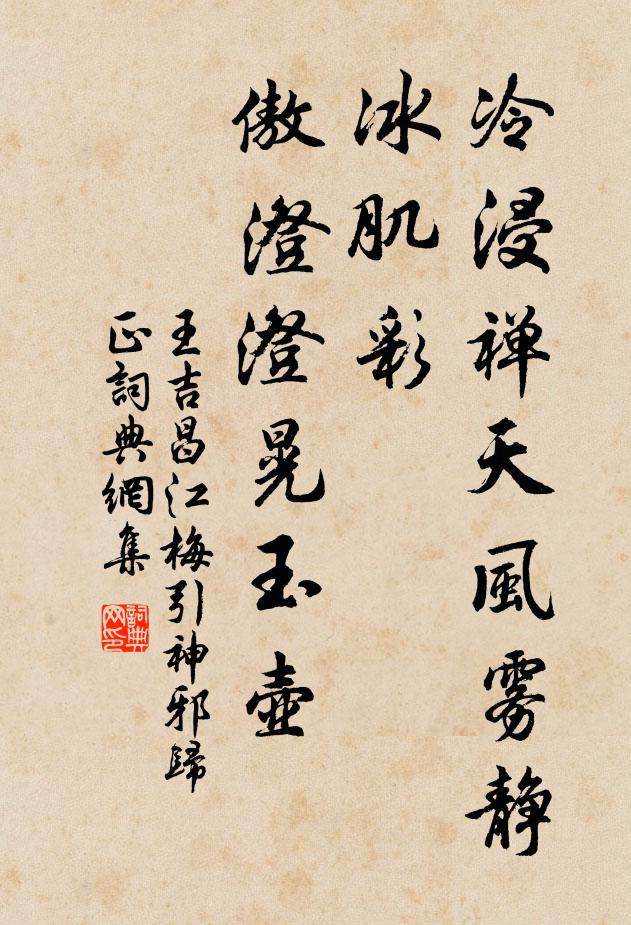 冷浸禅天風雾静
冰肌彩
傲澄澄晃玉壷
王吉昌江梅引神邪歸
正詞典網集
詞典网印